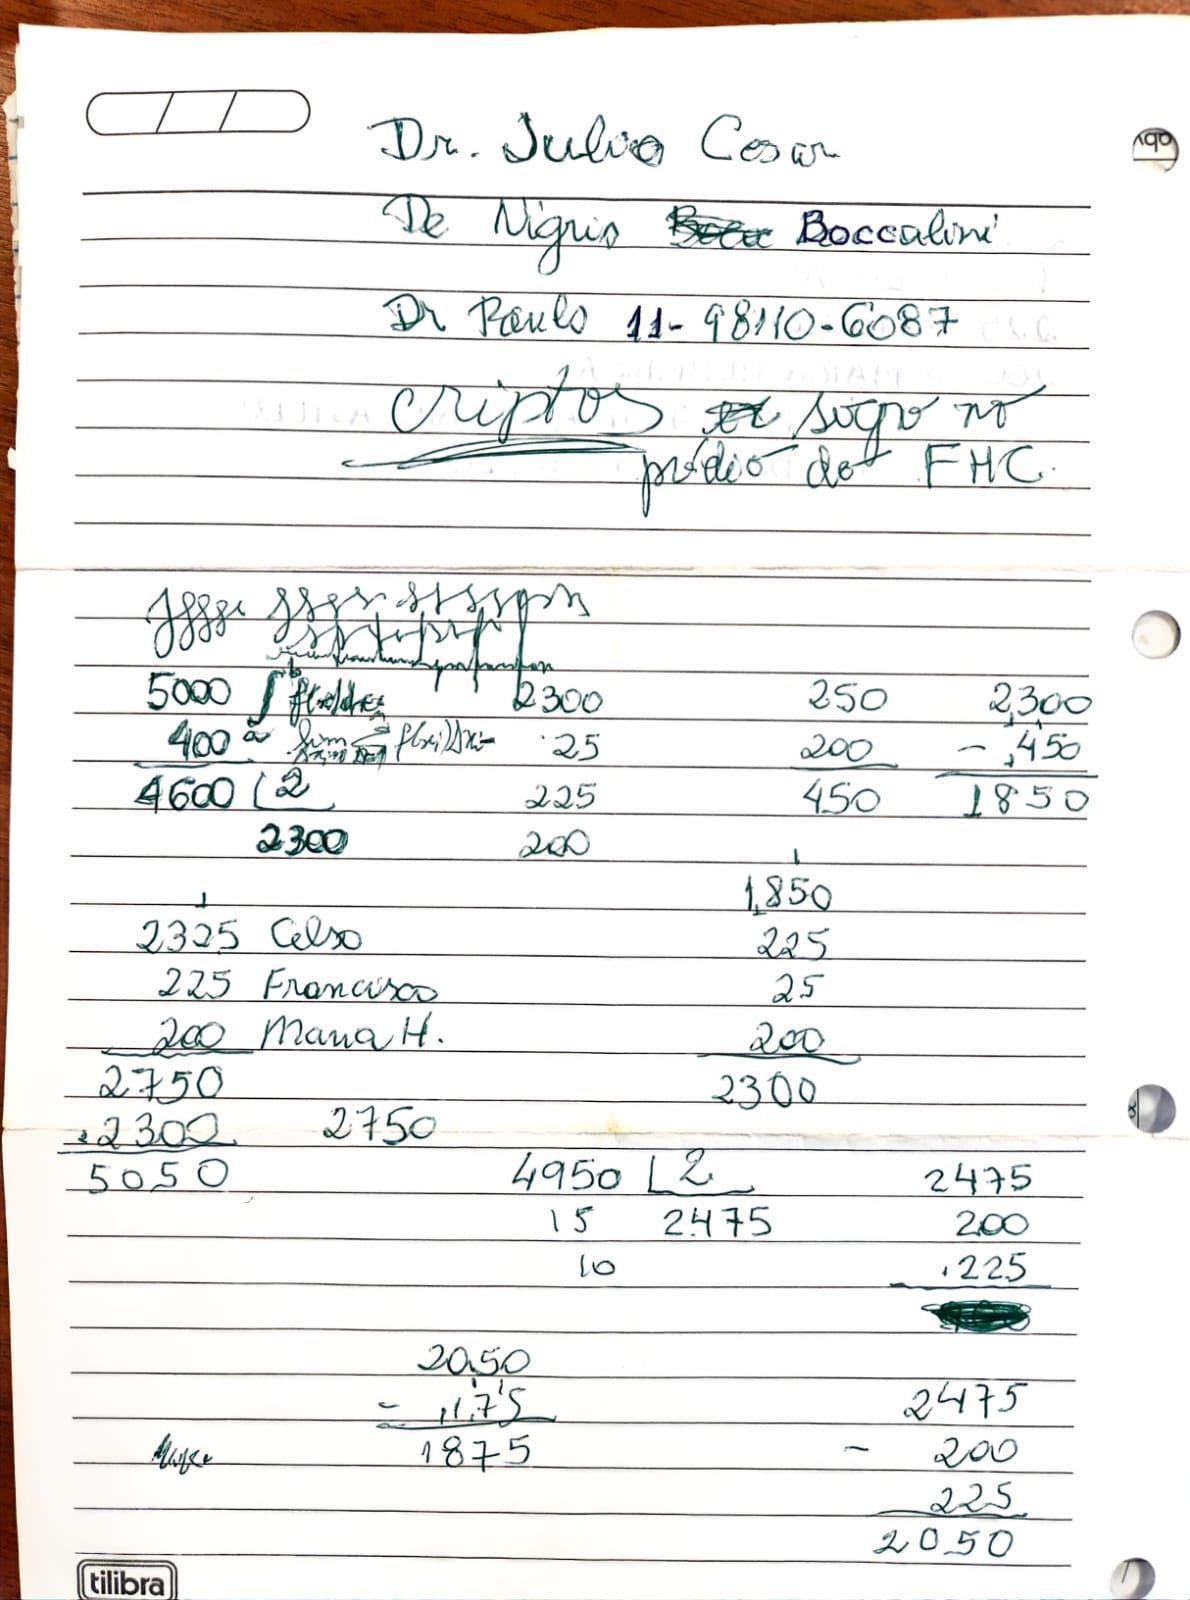 Dr. Julio Cesar
De Nigris Boccalini
Dr Paulo 11-98110-6087
criptos sogro no
prédio do FHC.
5000 2300 250 2300
400 25 200 - 450
4600 2 225 450 1850
2300 200
1850
2325 Celso 225
225 Francisco 25
200 Maria H. 200
2750 2300
2300 2750
5050 4950 2 2475
15 2475 200
10 225
2050
- 175 2475
1875 - 200
225
2050
tilibra